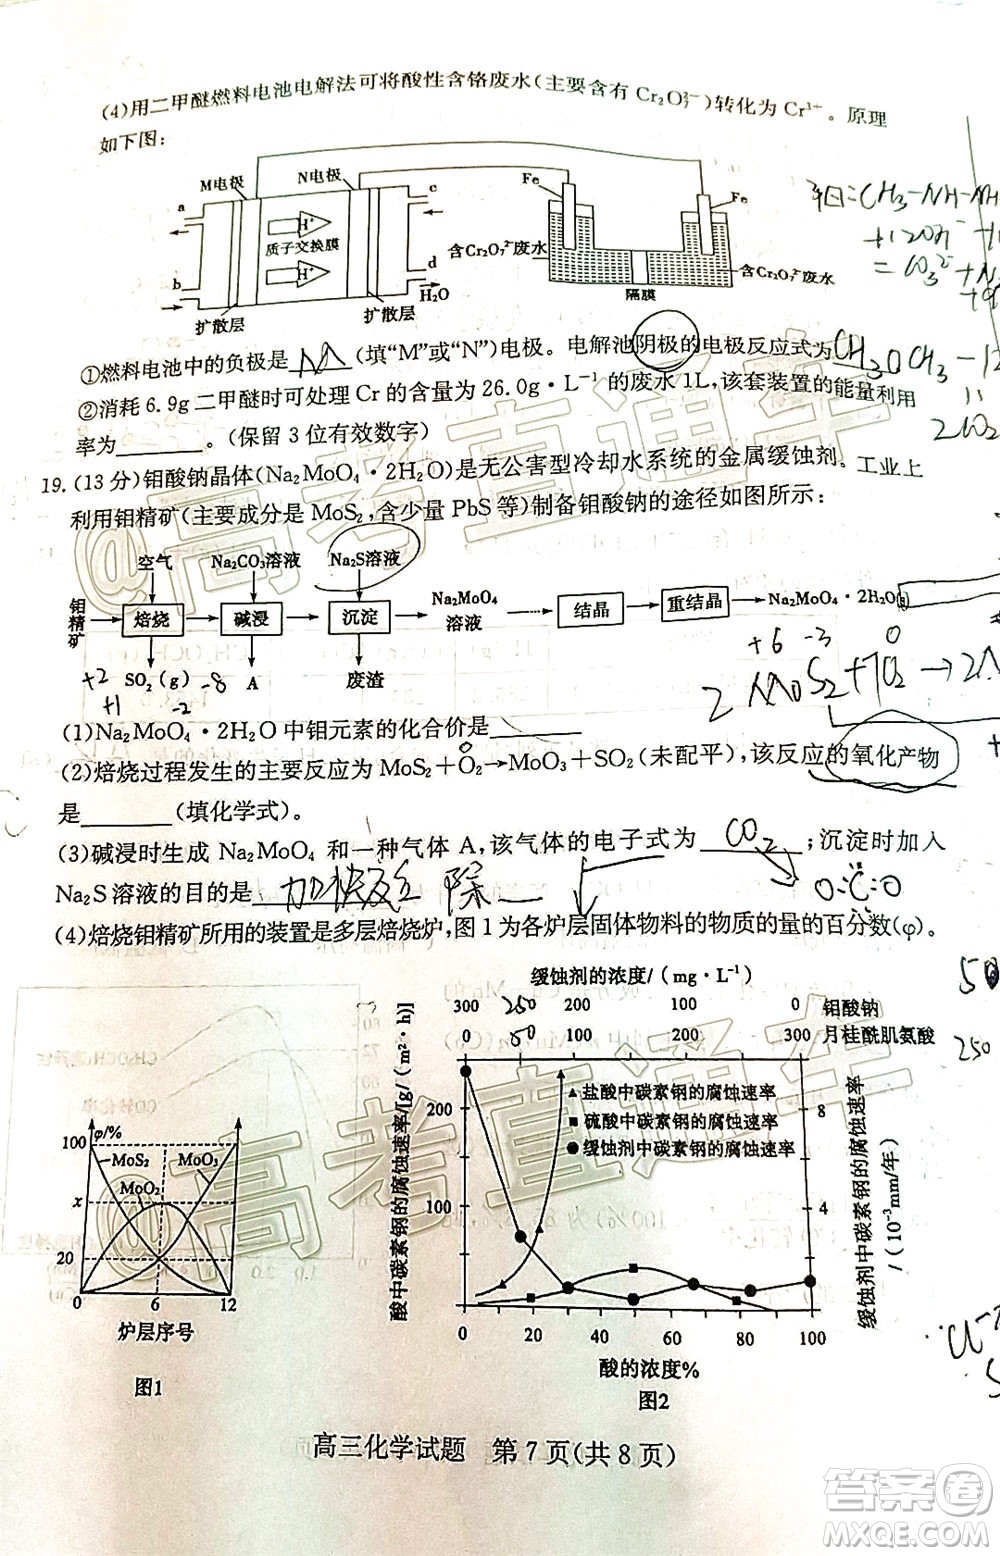 (4)用二甲醚燃料电池电解法可将酸性含铬废水(主要含有 Cr₂O₇²⁻)转化为 Cr³⁺。原理
如下图:
M电极
N电极
a
c
b
d
H⁺
质子交换膜
H⁺
H₂O
扩散层
扩散层
Fe
Fe
含Cr₂O₇²⁻废水
含Cr₂O₇²⁻废水
隔膜
①燃料电池中的负极是 (填“M”或“N”)电极。电解池阴极的电极反应式为
CH₃OCH₃
②消耗 6.9g 二甲醚时可处理 Cr 的含量为 26.0g·L⁻¹ 的废水 1L,该套装置的能量利用
率为________。(保留 3 位有效数字)
19.(13 分)钼酸钠晶体(Na₂MoO₄·2H₂O)是无公害型冷却水系统的金属缓蚀剂。工业上
利用钼精矿(主要成分是 MoS₂,含少量 PbS 等)制备钼酸钠的途径如图所示:
空气
Na₂CO₃溶液
Na₂S溶液
钼精矿
焙烧
碱浸
沉淀
Na₂MoO₄溶液
结晶
重结晶
Na₂MoO₄·2H₂O
SO₂(g)
A
废渣
+6 -3 0
2 MoS₂+7O₂→
+2
+1
-8
-2
(1)Na₂MoO₄·2H₂O 中钼元素的化合价是________
(2)焙烧过程发生的主要反应为 MoS₂+O₂→MoO₃+SO₂(未配平),该反应的氧化产物
是________(填化学式)。
(3)碱浸时生成 Na₂MoO₄ 和一种气体 A,该气体的电子式为 CO₂ ;沉淀时加入
Na₂S 溶液的目的是 加快反应 除
(4)焙烧钼精矿所用的装置是多层焙烧炉,图 1 为各炉层固体物料的物质的量的百分数(φ)。
100
φ/%
MoS₂
MoO₃
MoO₂
x
20
0
6
12
炉层序号
图1
缓蚀剂的浓度/(mg·L⁻¹)
300 250 200 100 0 钼酸钠
0 50 100 200 300 月桂酰肌氨酸
盐酸中碳素钢的腐蚀速率
硫酸中碳素钢的腐蚀速率
缓蚀剂中碳素钢的腐蚀速率
酸中碳素钢的腐蚀速率/[g/(m²·h)]
200
100
8
4
缓蚀剂中碳素钢的腐蚀速率/(10⁻³mm/年)
0 20 40 60 80 100
酸的浓度%
图2
50
250
高三化学试题 第 7 页(共 8 页)
@高考直通车
@高考直通车
答案卷
MXQE.COM